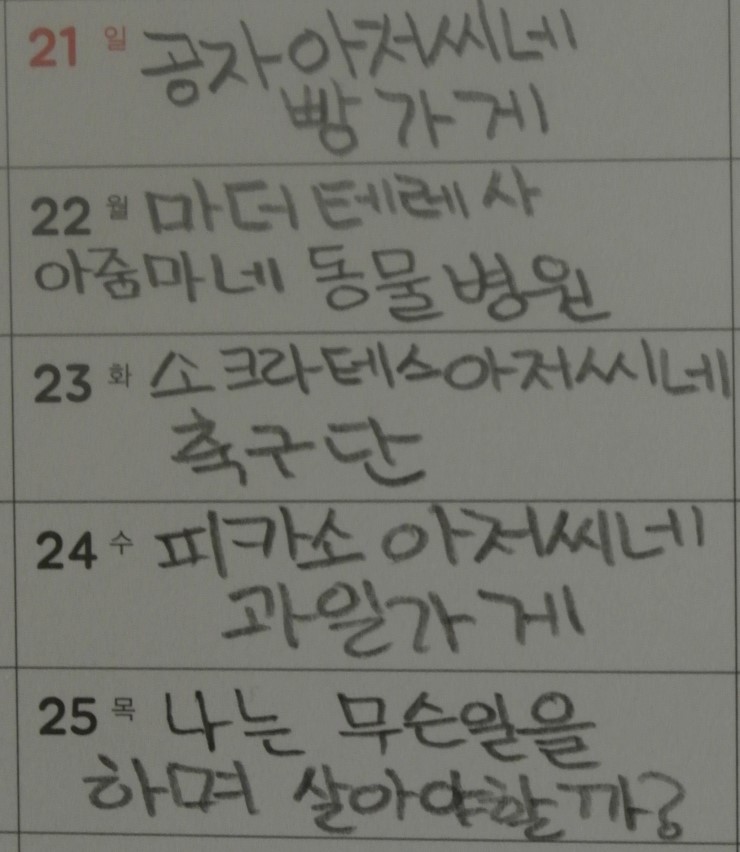 21 일 공자아저씨네
빵가게
22 월 마더테레사
아줌마네 동물병원
23 화 소크라테스아저씨네
축구단
24 수 피카소아저씨네
과일가게
25 목 나는 무슨일을
하며 살아야할까?